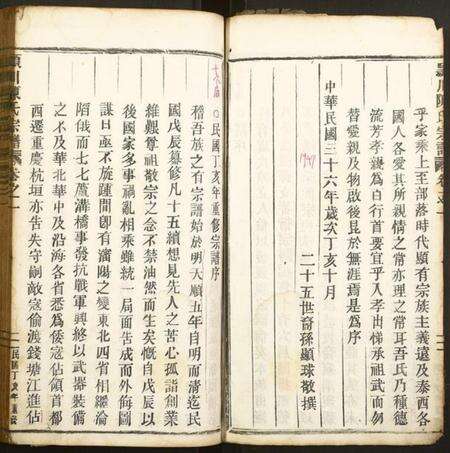 潁川陳氏宗譜
乎家乘上至部落時代顯有宗族主義遠及泰西各
國人各愛其所親情之常亦理之常耳吾氏乃種德
流芳孝親為百行首要宜乎入孝出悌承祖武而勿
替愛親及物啟後昆於無涯焉是為序
中華民國三十六年歲次丁亥十月
1947
二十五世裔孫顯球敬撰
民國丁亥年重修宗譜序
稽吾族之有宗譜始於明天順五年自明而清迄民
國戊辰纂修凡十五續想見先人之苦心孤詣創業
維艱尊祖敬宗之念不禁油然而生矣慨自戊辰以
後國家多事禍亂相乘雖統一局面告成而外侮圖
謀日亟不旋踵間卽有瀋陽之變東北四省相繼淪
陷俄而七七蘆溝橋事發抗戰軍興終以武器裝備
之不及華北華中及沿海各省悉為倭寇佔領首都
西遷重慶杭垣亦告失守嗣敵寇偷渡錢塘江進佔
潁川陳氏宗譜 卷之一
民國丁亥年重修